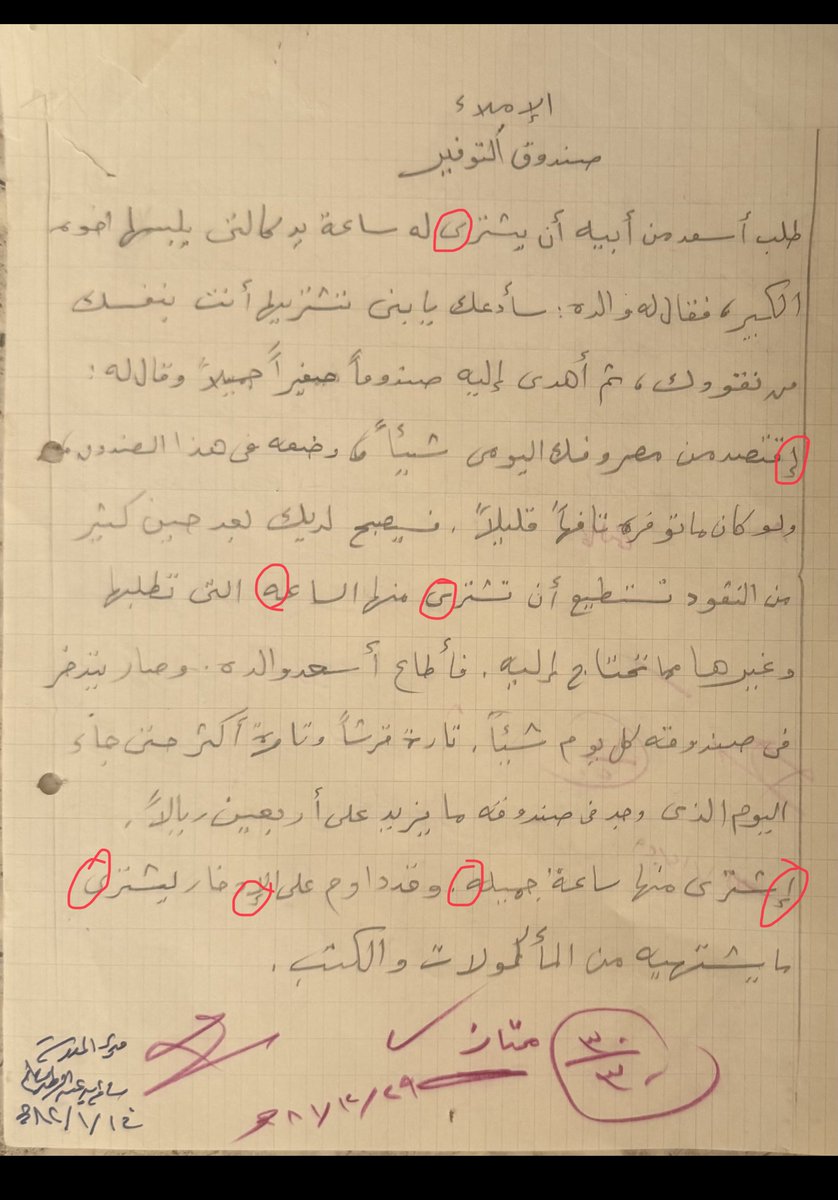 الإملاء
صندوق التوفير
طلب أسعد من أبيه أن يشترى له ساعة يد كالتى يلبسها اخوه
الكبير، فقال له والده: سأدعك يا بنى تشتريها أنت بنفسك
من نقودك، ثم أهدى إليه صندوقاً صغيراً جميلاً وقال له:
إقتصد من مصروفك اليومى شيئاً، وضعه فى هذا الصندوق،
ولو كان ما توفره تافهاً قليلاً. فسيصبح لديك بعد حين كثير
من النقود تستطيع أن تشترى منها الساعه التى تطلبها
وغيرها مما تحتاج إليه. فأطاع أسعد والده. وصار يدخر
فى صندوقه كل يوم شيئاً. تارة قرشاً وتارة أكثر حتى جاء
اليوم الذى وجد فى صندوقه ما يزيد على أربعين ريالاً.
إشترى منها ساعة جميله. وقد داوم على الإدخار ليشترى
ما يشتهيه من المأكولات والكتب.
٣٠/٣٠
ممتاز